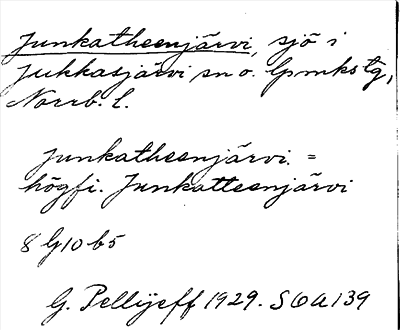 Junkatheenjärvi, sjö i
Jukkasjärvi sn o. lpmkstg,
Norrb. l.
junkatheenjärvi. =
högfi. Junkatteenjärvi
8 G10 b5
G. Pellijeff 1929. SOA 139